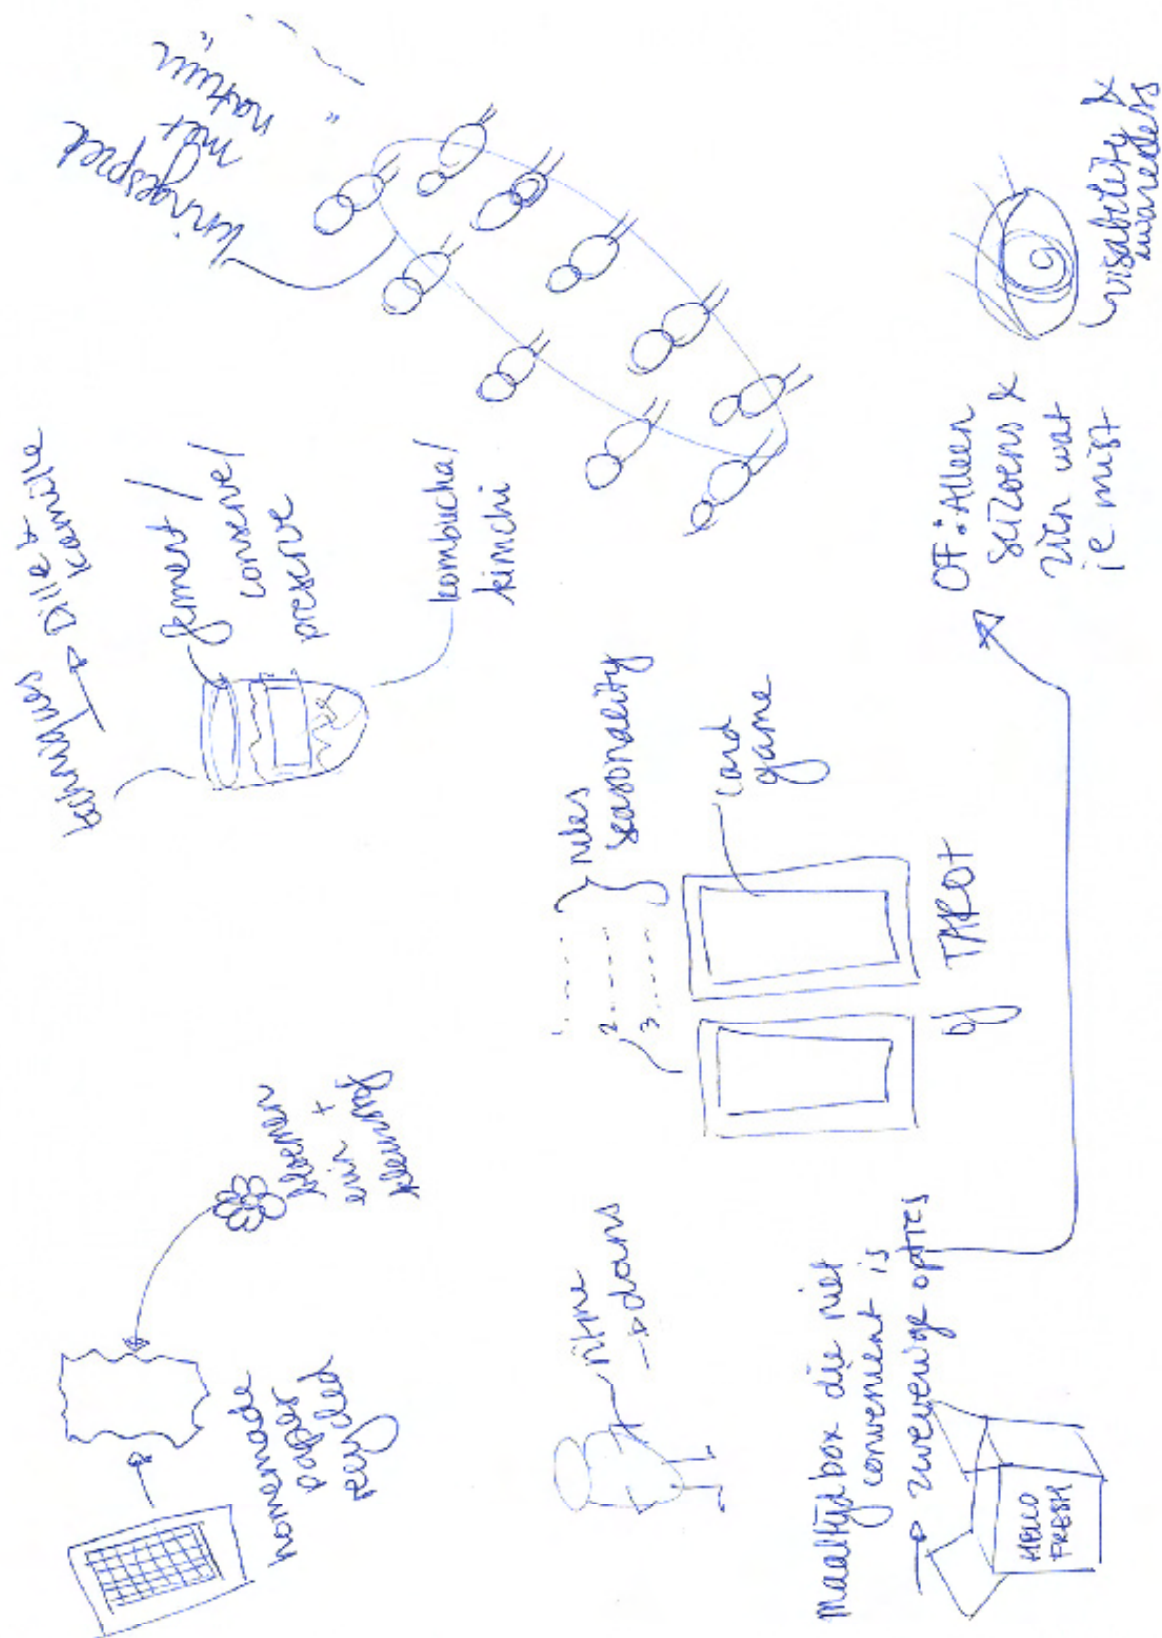 homemade
paper
recycled
bloemen
erin +
kleurstof
techniques
→ Dille &
kamille
ferment /
conserve /
preserve
kombucha /
kimchi
kringgesprek
met
"natuur"
ritme
→ dans
1. ----
2. ----
3. ----
rules
seasonality
card
game
of TAROT
maaltijdbox die niet
convenient is
→ zweverige opties
HELLO
FRESH
OF: Alleen
seizoens &
zien wat
je mist
visability &
awareness